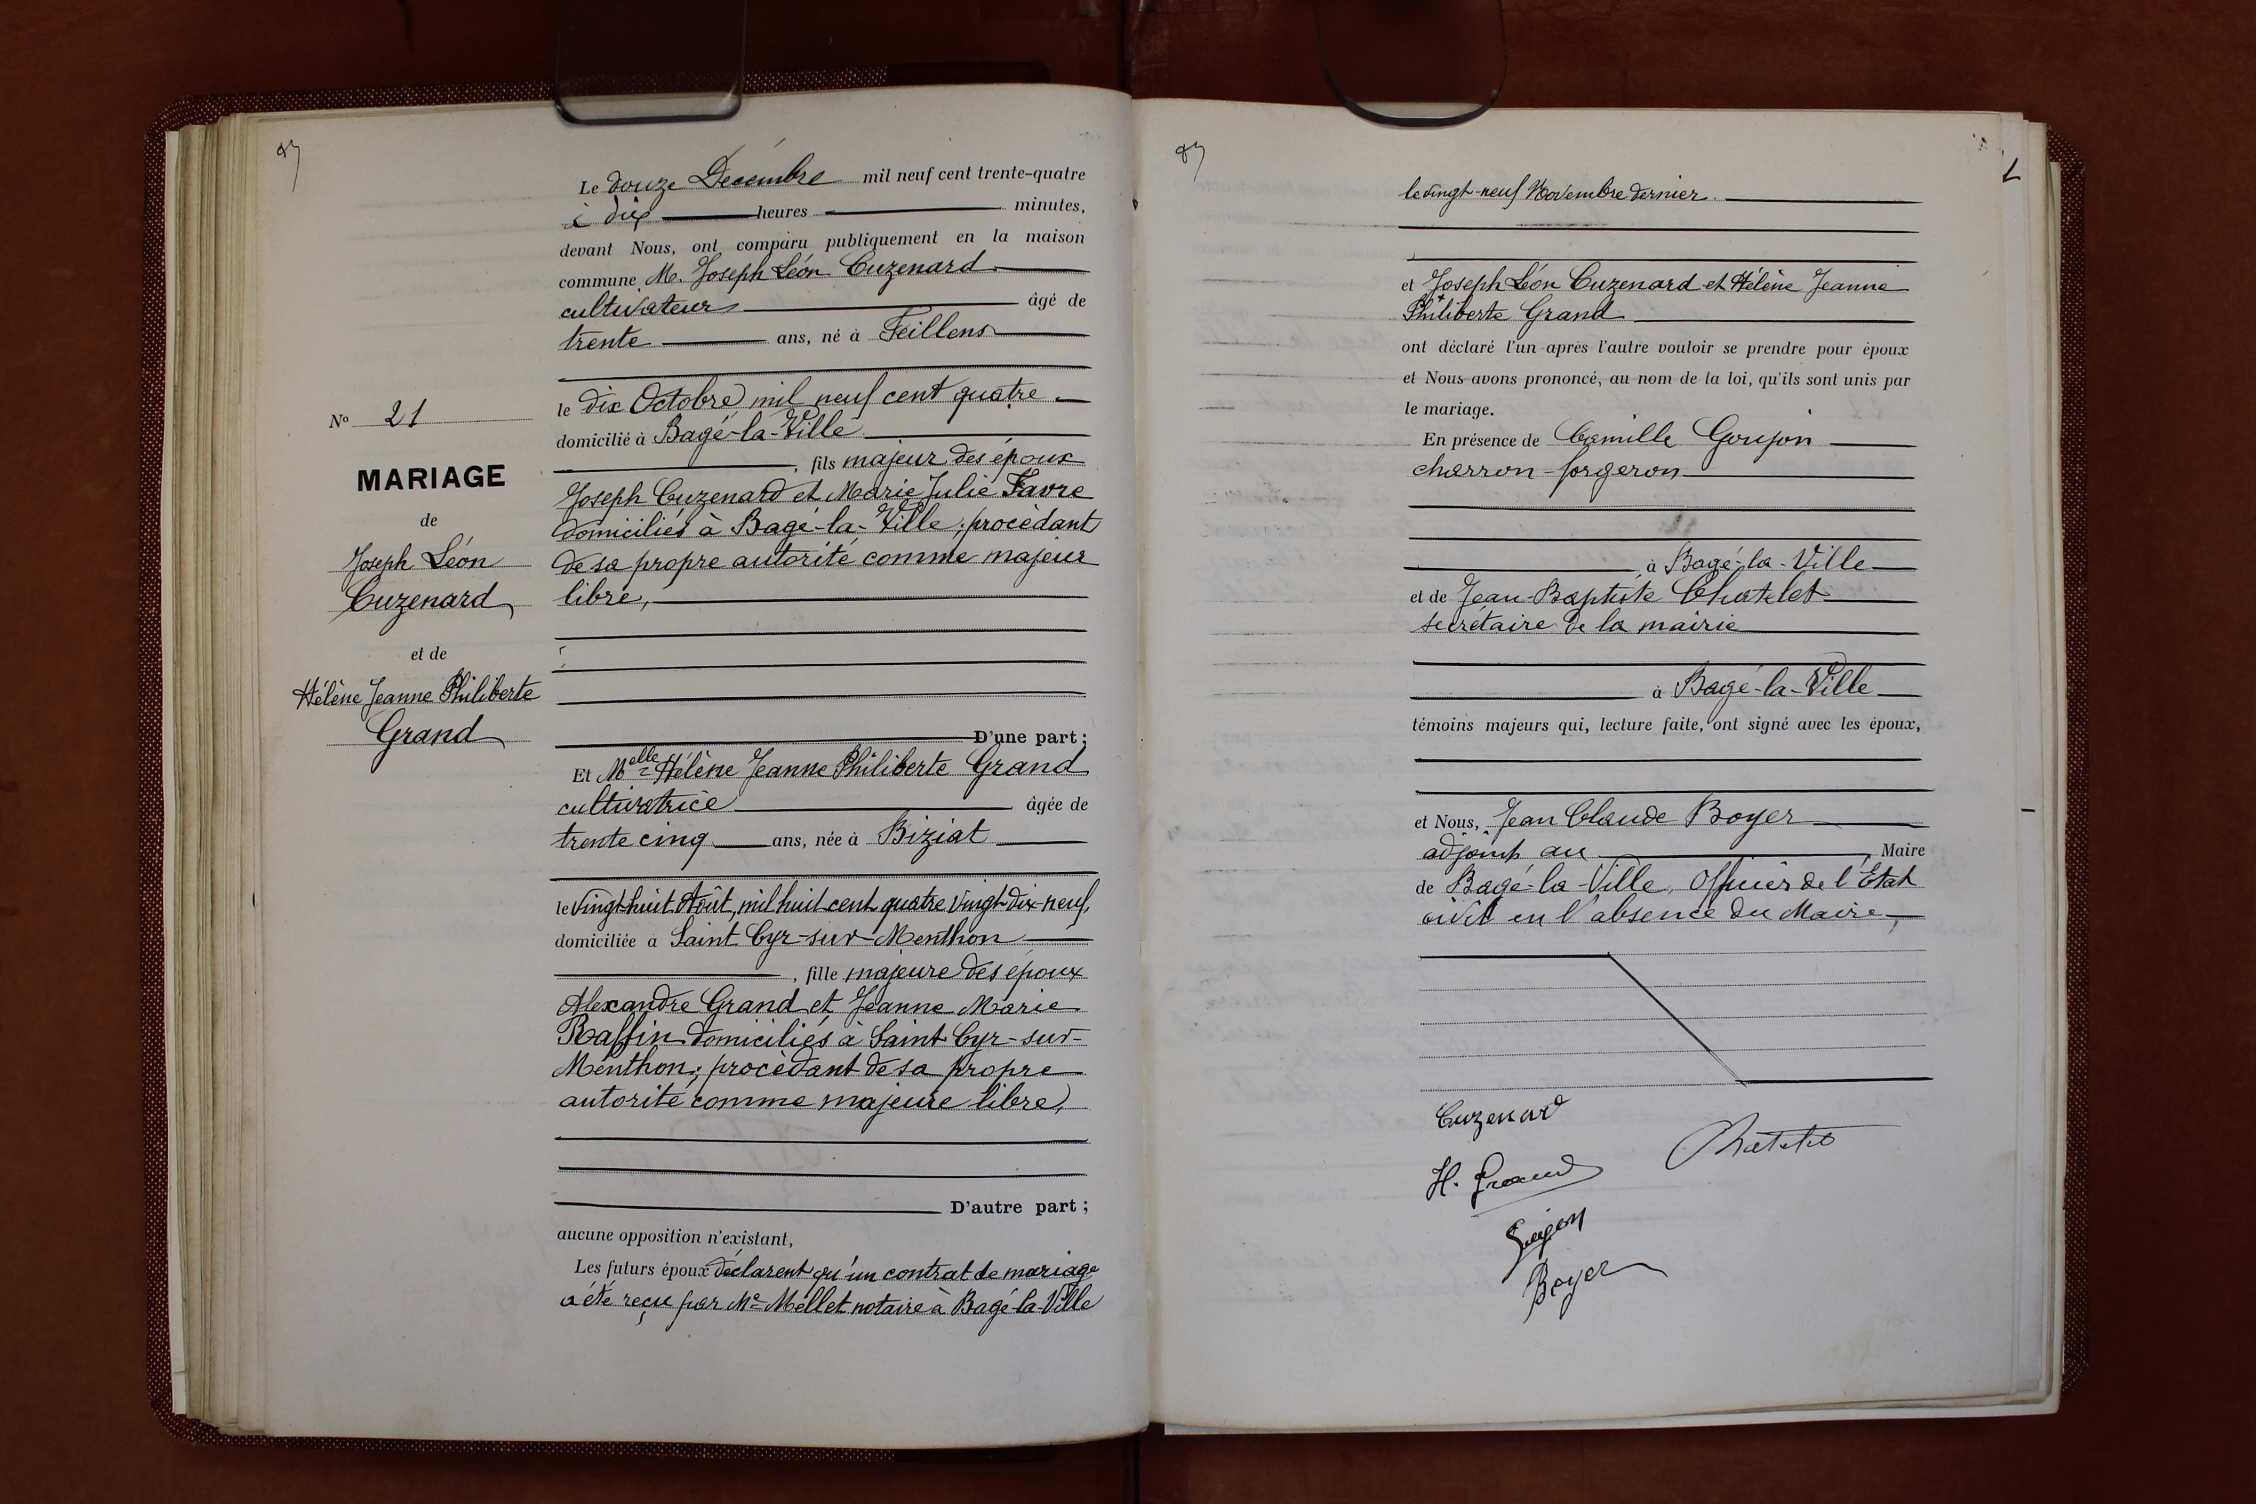 87
Le douze Décembre mil neuf cent trente-quatre
à dix heures minutes,
devant Nous, ont comparu publiquement en la maison
commune M. Joseph Léon Cuzenard
cultivateur âgé de
trente ans, né à Feillens
le dix Octobre mil neuf cent quatre
domicilié à Bagé-la-Ville
, fils majeur des époux
Joseph Cuzenard et Marie Julie Favre
domiciliés à Bagé-la-Ville ; procèdant
de sa propre autorité comme majeur
libre,
D'une part ;
Nº 21
MARIAGE
de
Joseph Léon
Cuzenard
et de
Hélène Jeanne Philiberte
Grand
Et Melle Hélène Jeanne Philiberte Grand
cultivatrice âgée de
trente cinq ans, née à Biziat
le vingt huit Août, mil huit cent quatre vingt dix-neuf,
domiciliée a Saint Cyr-sur-Menthon
, fille majeure des époux
Alexandre Grand et Jeanne Marie
Raffin domiciliés à Saint Cyr-sur-
Menthon ; procèdant de sa propre
autorité comme majeure libre,
D'autre part ;
aucune opposition n'existant,
Les futurs époux déclarent qu'un contrat de mariage
a été reçu par Me Mellet notaire à Bagé-la-Ville
87
le vingt-neuf Novembre dernier.
et Joseph Léon Cuzenard et Hélène Jeanne
Philiberte Grand
ont déclaré l'un après l'autre vouloir se prendre pour époux
et Nous avons prononcé, au nom de la loi, qu'ils sont unis par
le mariage.
En présence de Camille Goujon
charron-forgeron
à Bagé-la-Ville
et de Jean-Baptiste Chatelet
secrétaire de la mairie
à Bagé-la-Ville
témoins majeurs qui, lecture faite, ont signé avec les époux,
et Nous, Jean Claude Boyer
adjoint au Maire
de Bagé-la-Ville, Officier de l'État
civil en l'absence du Maire,
Cuzenard
Chatelet
H. Grand
Goujon
Boyer